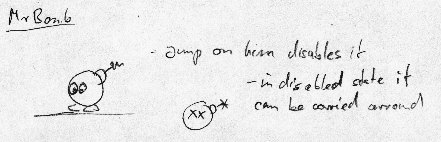 Mr Bomb
- Jump on him disables it
- in disabled state it
can be carried arround
xx